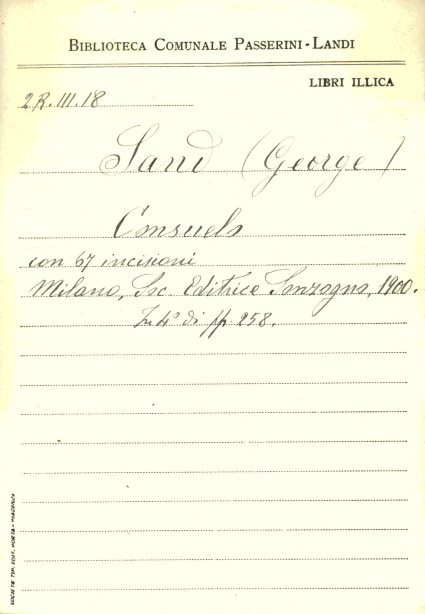 BIBLIOTECA COMUNALE PASSERINI-LANDI
LIBRI ILLICA
2R.III.18
Sand (George)
Consuelo
con 67 incisioni
Milano, Soc. Editrice Sonzogno, 1900.
In 4° di pp. 258.
SOCIETÀ TIP. EDIT. PORTA - PIACENZA